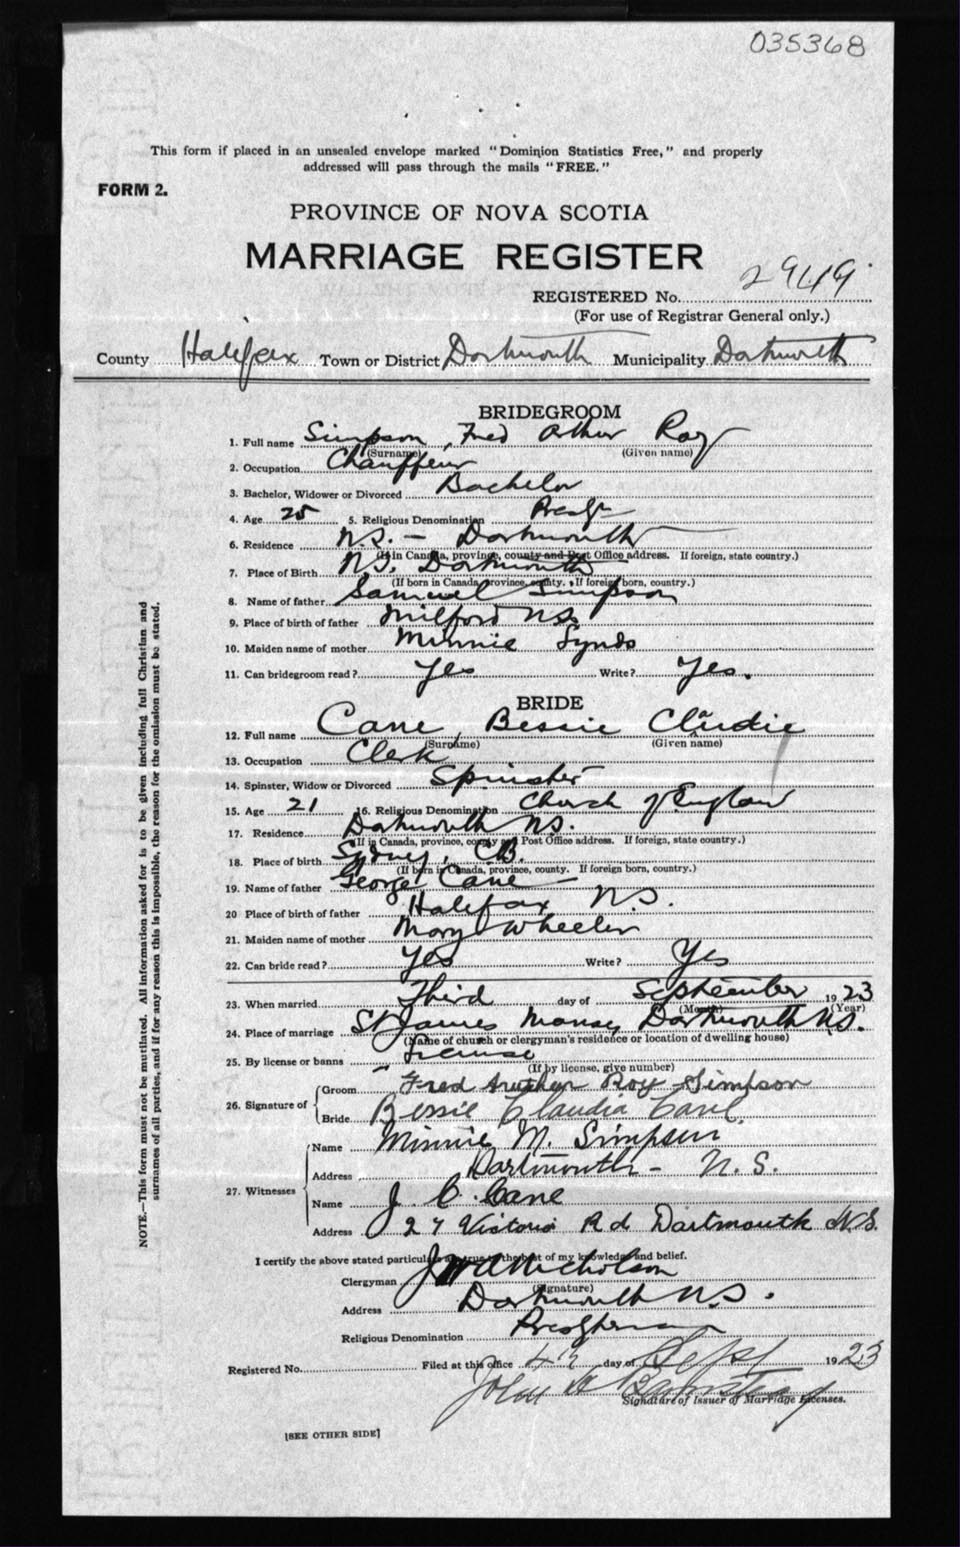 035368
This form if placed in an unsealed envelope marked "Dominion Statistics Free," and properly
addressed will pass through the mails "FREE."
FORM 2.
PROVINCE OF NOVA SCOTIA
MARRIAGE REGISTER
REGISTERED No. 2949
(For use of Registrar General only.)
County Halifax Town or District Dartmouth Municipality Dartmouth
BRIDEGROOM
1. Full name Simpson, Fred Arthur Roy
(Surname) (Given name)
2. Occupation Chauffeur
3. Bachelor, Widower or Divorced Bachelor
4. Age 25 5. Religious Denomination Presby
6. Residence N.S. - Dartmouth
(If in Canada, province, county and Post Office address. If foreign, state country.)
7. Place of Birth N.S. Dartmouth
(If born in Canada, province, county. If foreign born, country.)
8. Name of father Samuel Simpson
9. Place of birth of father Milford N.S.
10. Maiden name of mother Minnie Synds
11. Can bridegroom read? Yes Write? Yes.
BRIDE
12. Full name Cane Bessie Claudie
(Surname) (Given name)
13. Occupation Clerk
14. Spinster, Widow or Divorced Spinster
15. Age 21 16. Religious Denomination Church of England
17. Residence Dartmouth N.S.
(If in Canada, province, county and Post Office address. If foreign, state country.)
18. Place of birth Sydney, C.B.
(If born in Canada, province, county. If foreign born, country.)
19. Name of father George Cane
20 Place of birth of father Halifax N.S.
21. Maiden name of mother Mary Wheeler
22. Can bride read? Yes Write? Yes
23. When married Third day of September 1923
(Month) (Year)
24. Place of marriage St James Manse, Dartmouth N.S.
(Name of church or clergyman's residence or location of dwelling house)
25. By license or banns License
(If by license, give number)
26. Signature of Groom Fred Aruther Roy Simpson
Bride Bessie Claudia Cane
27. Witnesses Name Minnie M. Simpson
Address Dartmouth - N.S.
Name J. C. Cane
Address 27 Victoria Rd Dartmouth N.S.
I certify the above stated particulars are true to the best of my knowledge and belief.
Clergyman J W A Nicholson
(Signature)
Address Dartmouth N.S.
Religious Denomination Presbyterian
Registered No. Filed at this office 4th day of Sept 1923
John
Signature of Issuer of Marriage Licenses.
[SEE OTHER SIDE]
NOTE.—This form must not be mutilated. All information asked for is to be given including full Christian and
surnames of all parties, and if for any reason this is impossible, the reason for the omission must be stated.